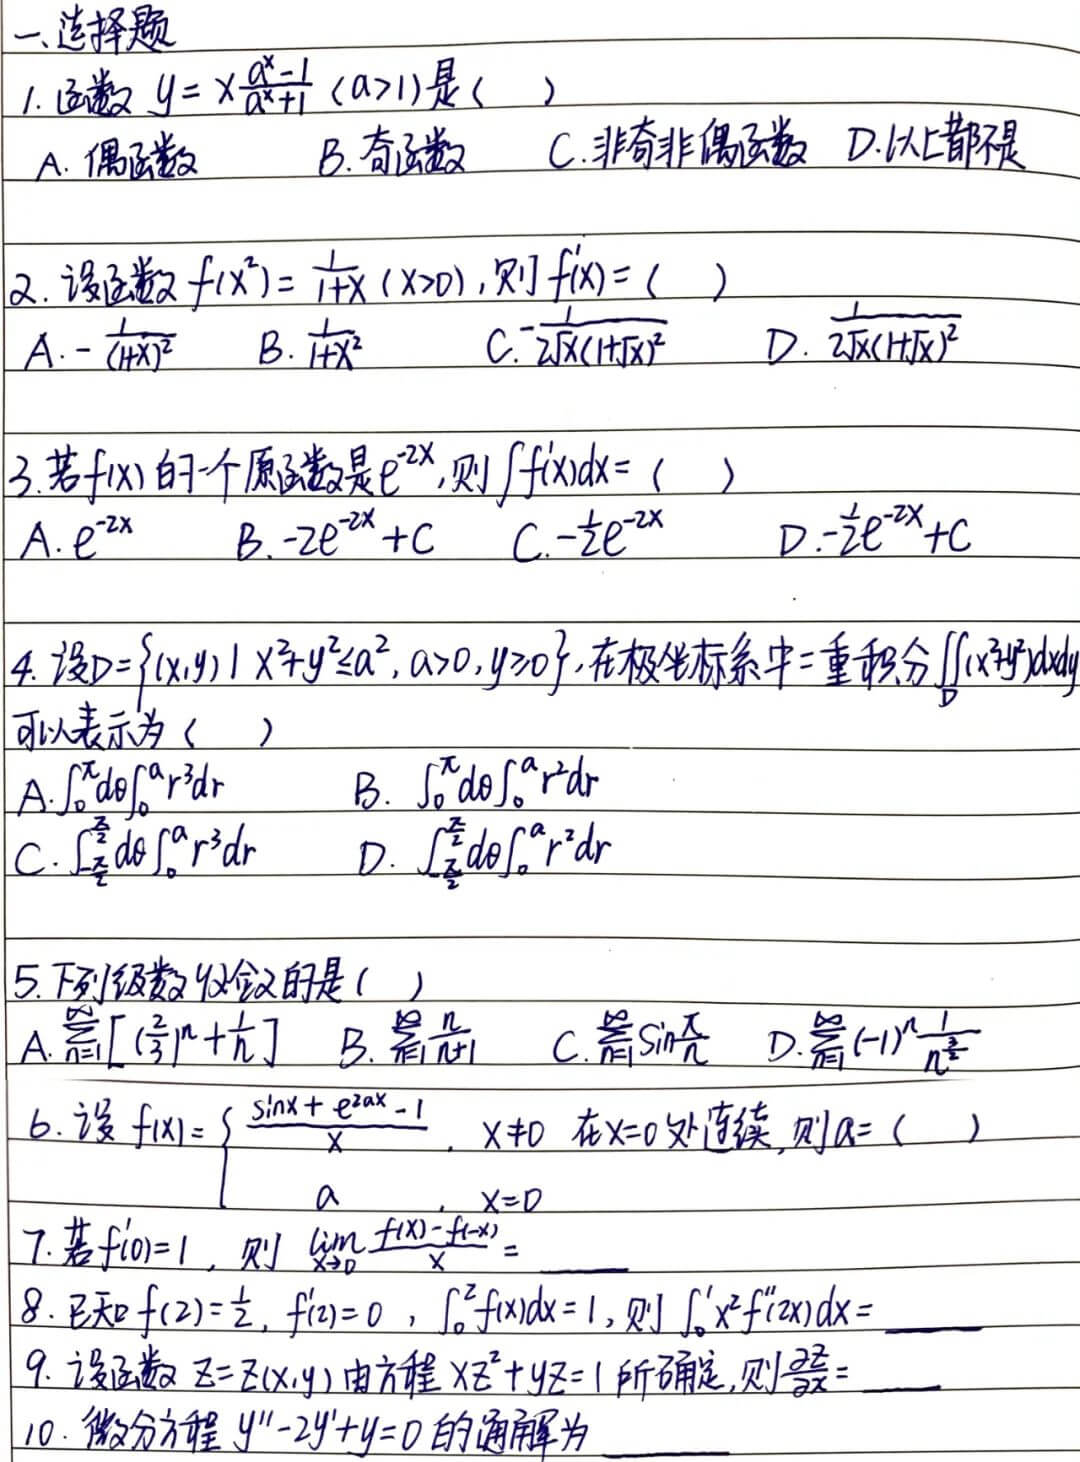 一、选择题
1. 函数 y = x (a^x-1)/(a^x+1) (a>1) 是 ( )
A. 偶函数 B. 奇函数 C. 非奇非偶函数 D. 以上都不是
2. 设函数 f(x²) = 1/(1+x) (x>0), 则 f'(x) = ( )
A. -1/(1+x)² B. 1/(1+x²) C. -1/(2√x(1+√x)²) D. 1/(2√x(1+√x)²)
3. 若 f(x) 的一个原函数是 e^(-2x), 则 ∫f'(x)dx = ( )
A. e^(-2x) B. -2e^(-2x)+C C. -½e^(-2x) D. -½e^(-2x)+C
4. 设D={(x,y) | x²+y²≤a², a>0, y≥0}, 在极坐标系中二重积分∬_D(x²+y²)dxdy
可以表示为 ( )
A. ∫_0^π dθ∫_0^a r³dr B. ∫_0^π dθ∫_0^a r²dr
C. ∫_{-π/2}^{π/2} dθ∫_0^a r³dr D. ∫_{-π/2}^{π/2} dθ∫_0^a r²dr
5. 下列级数收敛的是 ( )
A. ∑_{n=1}^∞[(2/3)^n + 1/n] B. ∑_{n=1}^∞ n/(n+1) C. ∑_{n=1}^∞ sin π/n D. ∑_{n=1}^∞ (-1)^n 1/n^(3/2)
6. 设 f(x) = { (sinx + e^(2ax) - 1)/x , x≠0 在x=0处连续, 则a= ( )
a , x=0
7. 若f'(0)=1, 则 lim_{x→0} (f(x)-f(-x))/x = ____
8. 已知 f(2)=½, f'(2)=0, ∫_0^2 f(x)dx=1, 则 ∫_0^1 x²f''(2x)dx= ____
9. 设函数 z=z(x,y) 由方程 xz²+yz=1 所确定, 则 ∂z/∂x = ____
10. 微分方程 y''-2y'+y=0 的通解为 ____